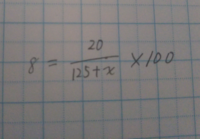 8 = \frac{20}{125+x} × 100